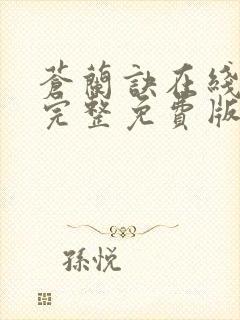 蒼蘭訣在綫
完整免費版
孫悅